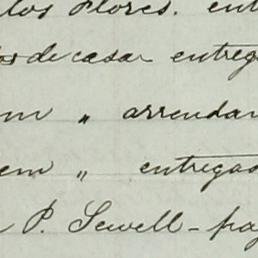 los Flores. ent
os de casar entreg
m " arrendar
em " entregas
P. Sewell - pag